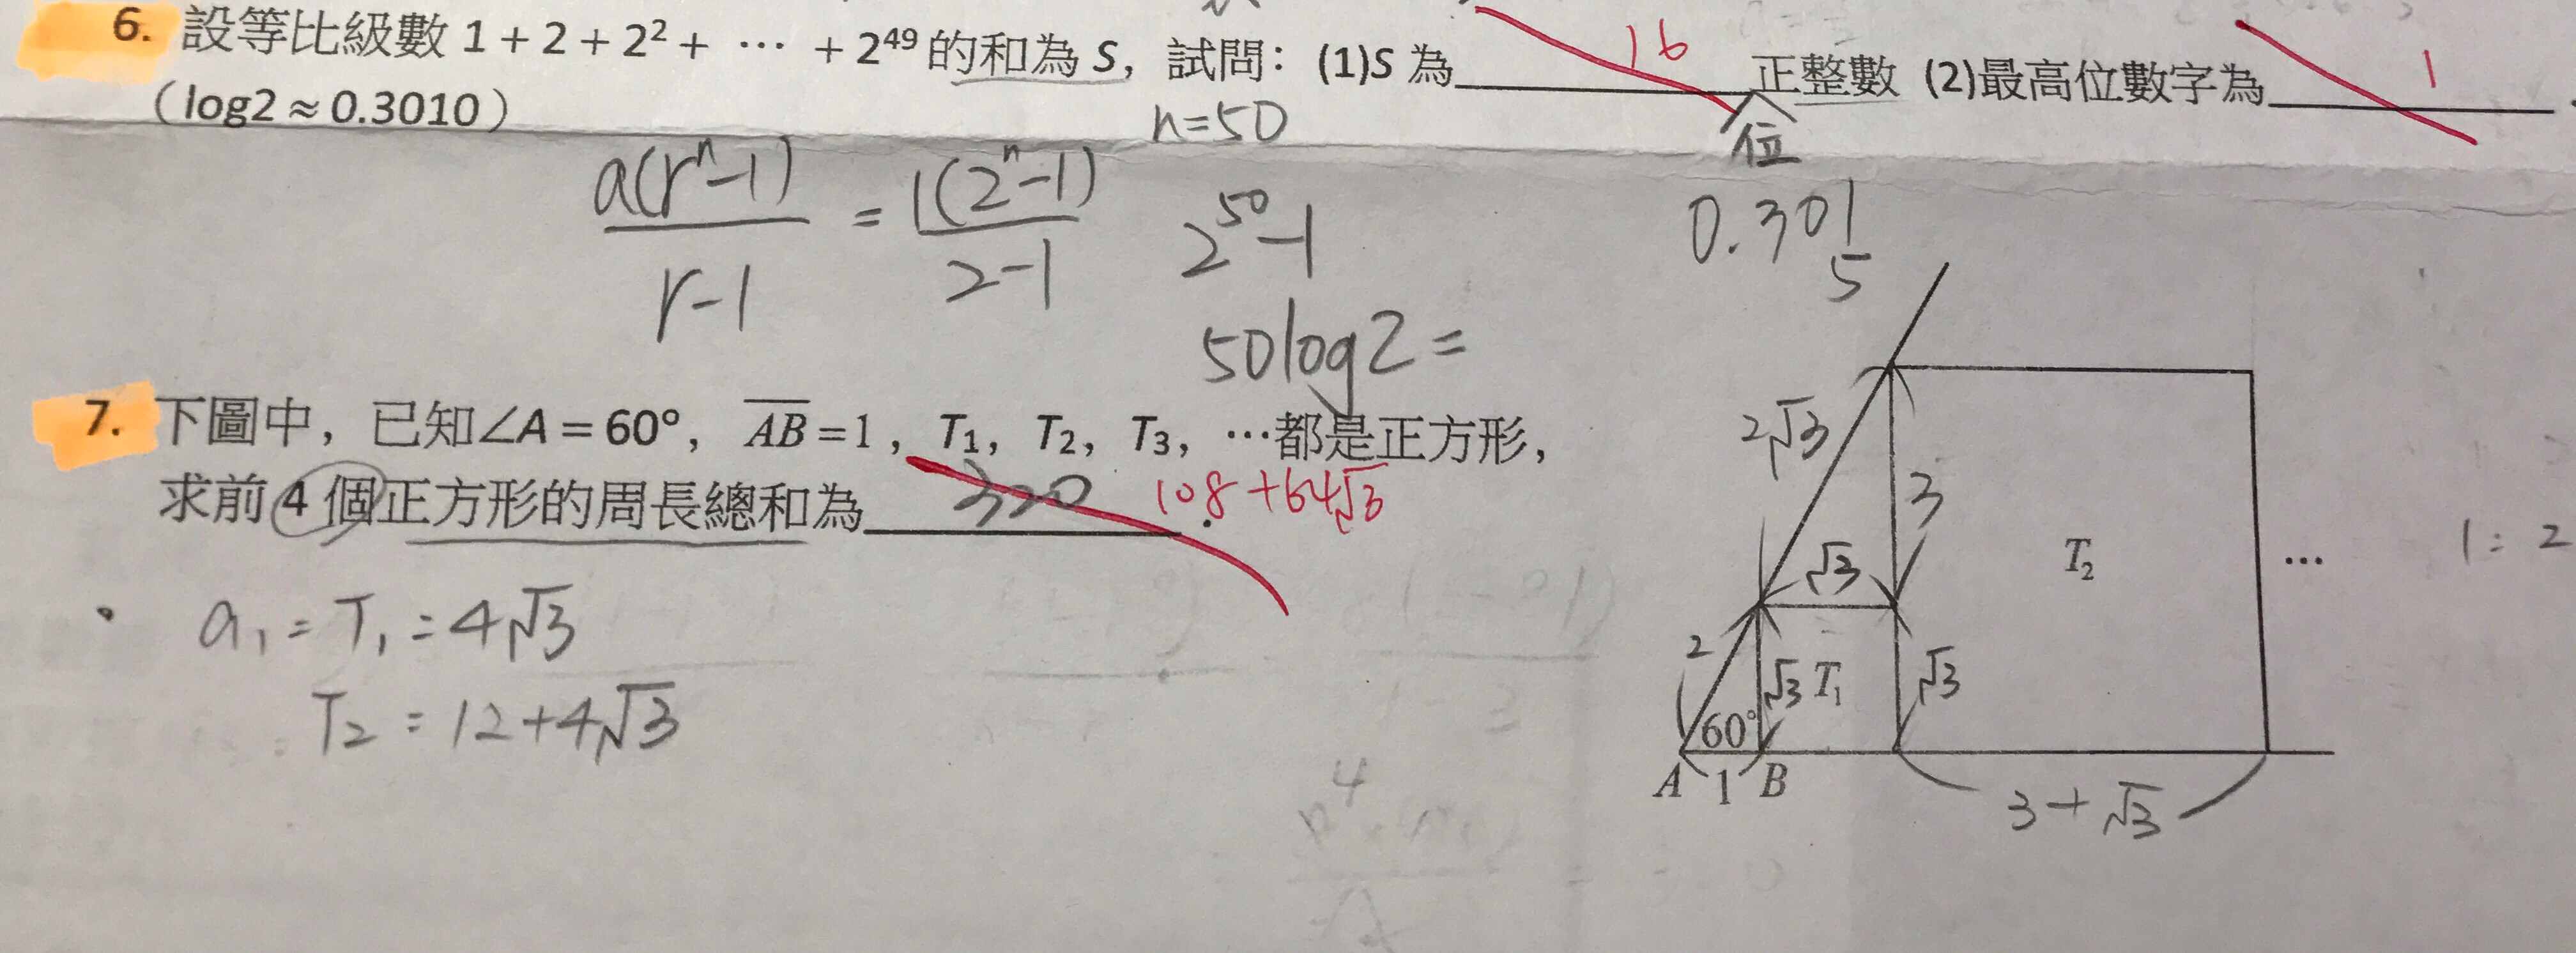 6. 設等比級數 1 + 2 + 2² + ⋯ + 2⁴⁹ 的和為 S，試問：(1)S 為 16 正整數 (2)最高位數字為 1 .
位
（log2 ≈ 0.3010）
n=50
a(rⁿ-1) / r-1 = 1(2ⁿ-1) / 2-1
2⁵⁰-1
0.301
5
50log2 =
7. 下圖中，已知∠A = 60°，AB = 1，T₁，T₂，T₃，⋯都是正方形，
求前 4 個正方形的周長總和為 320 .
108+64√3
a₁ = T₁ = 4√3
T₂ = 12+4√3
2√3
3
√3
T₂
⋯
1 : 2
2
√3
T₁
√3
60°
A 1 B
3+√3